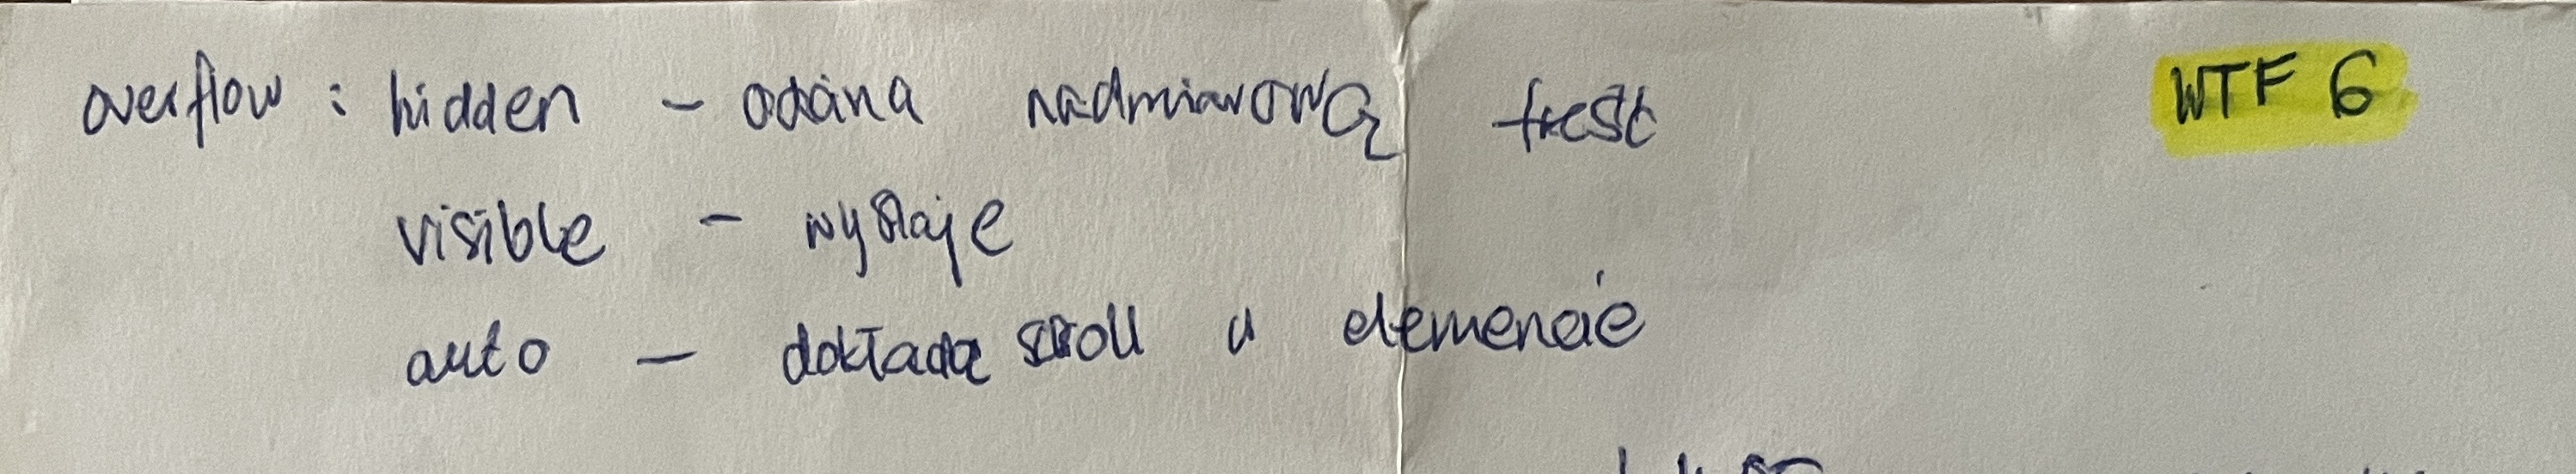 overflow : hidden - odcina nadmiarową treść WTF 6
visible - wystaje
auto - dokłada scroll w elemencie